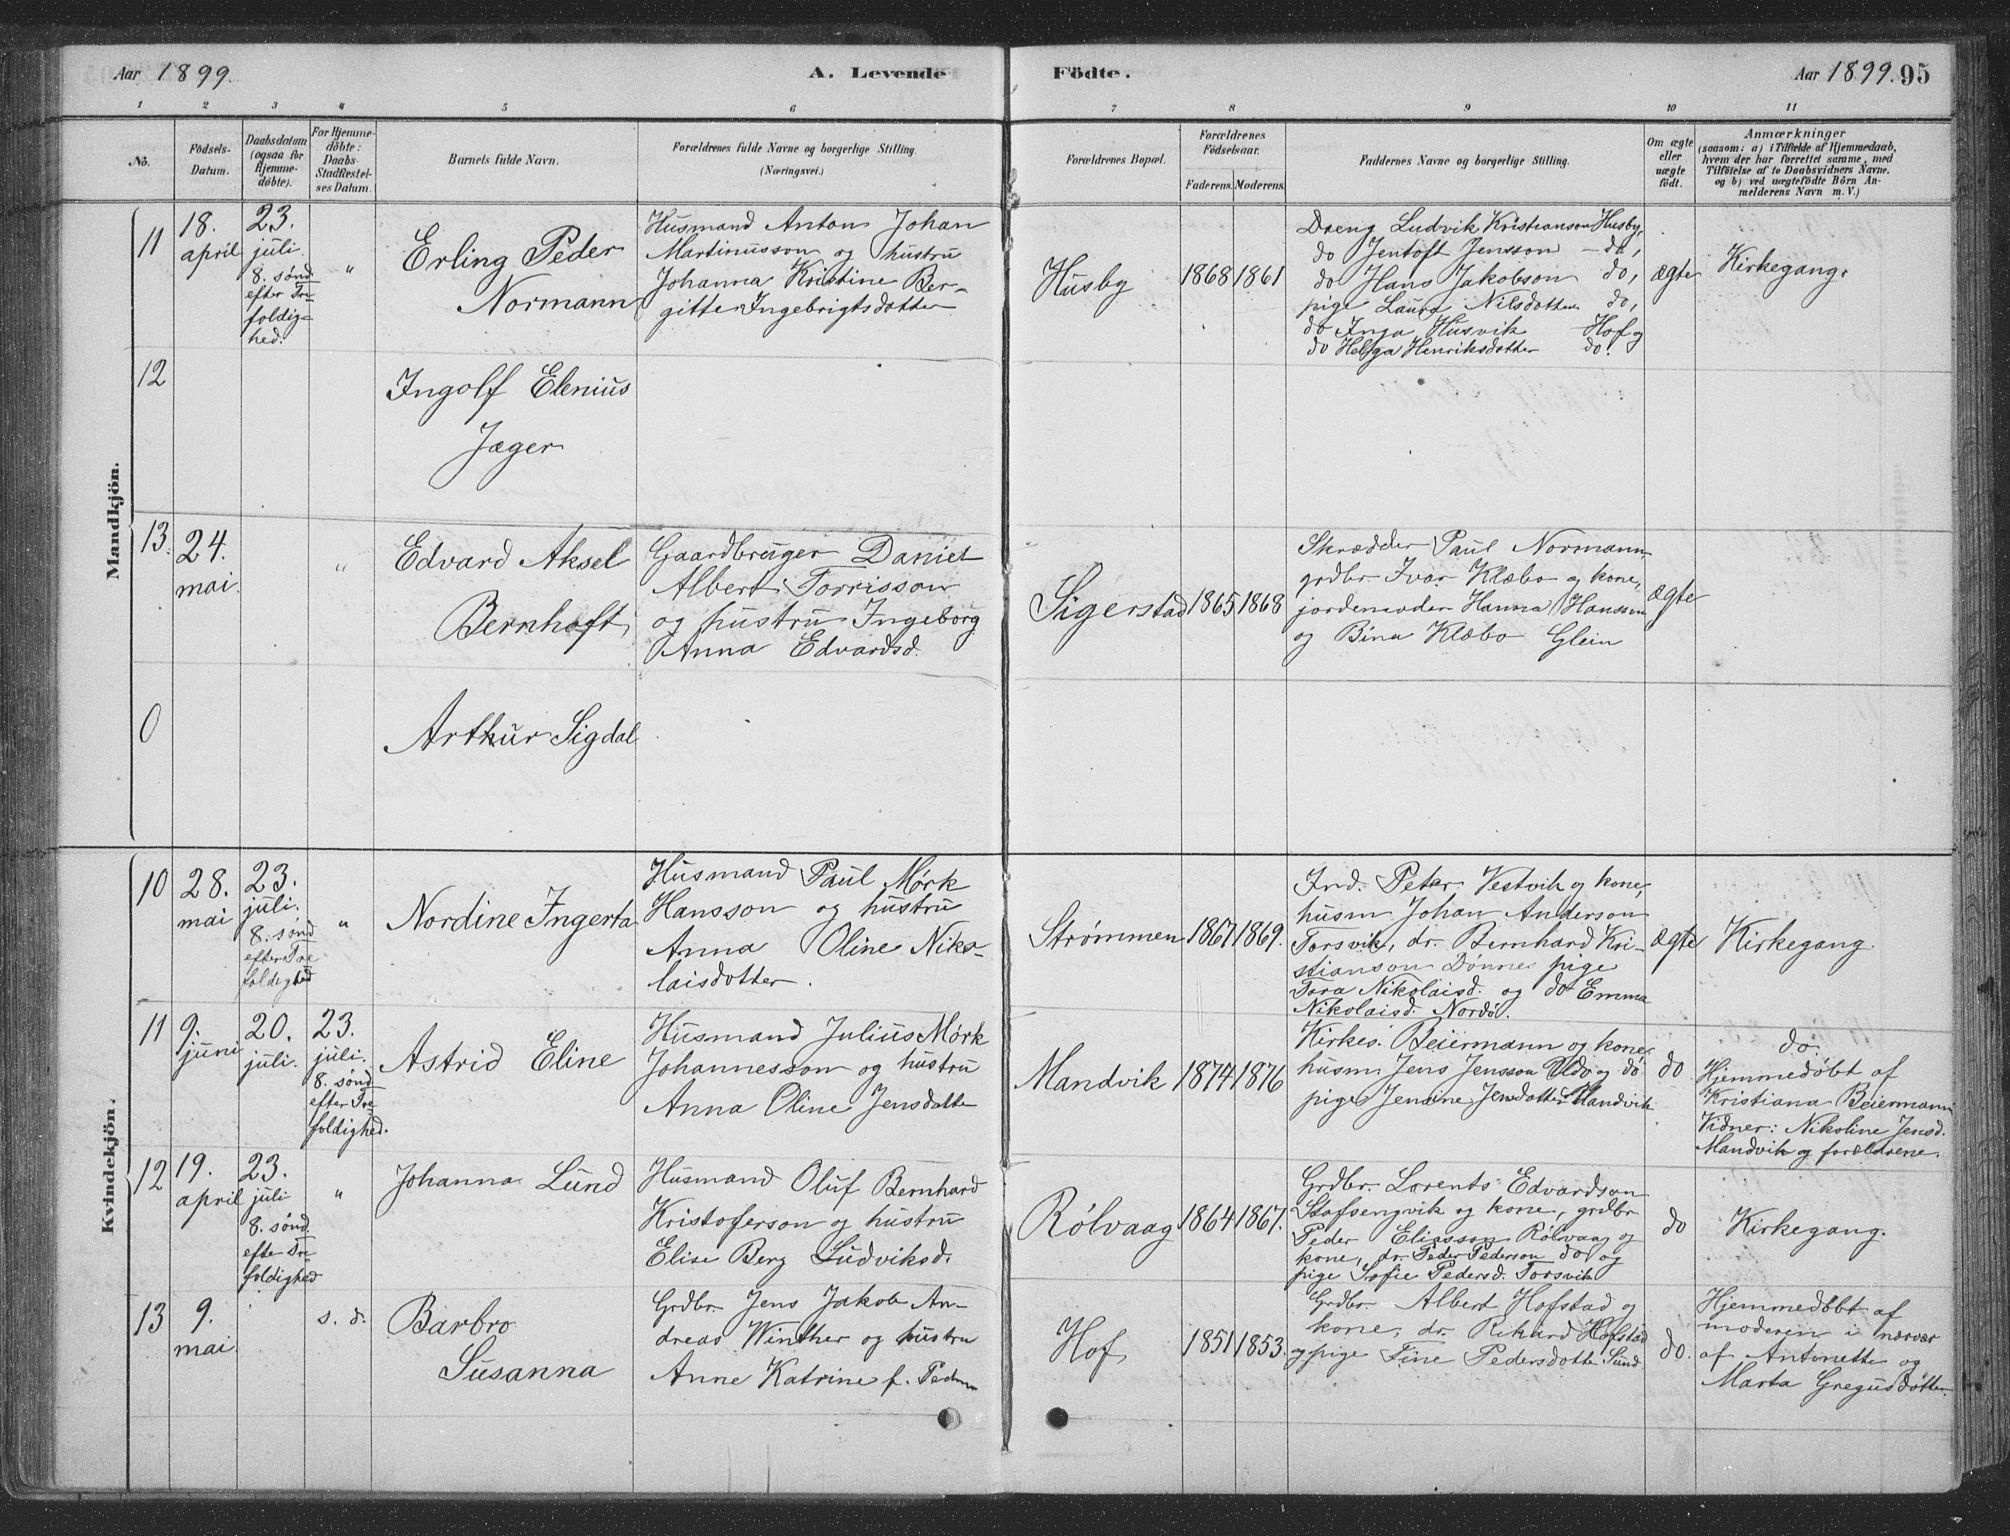 Aar 1899.
A. Levende
Födte.
Aar 1899. 95
1 2 3 4 5 6 7 8 9 10 11
No.
Födsels-
Datum.
Daabsdatum
(ogsaa for
Hjemme-
döbte).
For Hjemme-
döbte:
Daabs-
Stadfæstel-
ses Datum.
Barnets fulde Navn.
Forældrenes fulde Navne og borgerlige Stilling.
(Næringsvei.)
Forældrenes Bopæl.
Forældrenes
Födselsaar.
Faderens. Moderens.
Faddernes Navne og borgerlige Stilling.
Om ægte
eller
uægte
födt.
Anmærkninger
(saasom: a) i Tilfælde af Hjemmedaab,
hvem der har forrettet samme, med
Tilföielse af to Daabsvidners Navne.
og b) ved uægtefödte Börn An-
melderens Navn m. V.)
Mandkjön.
11
18.
april
23.
juli
8. sønd.
efter Tre
foldig-
hed.
"
Erling Peder
Normann
Husmand Anton Johan
Martinusson og hustru
Johanna Kristine Ber-
gitte Ingebrigtsdotter
Husby
1868 1861
Dreng Ludvik Kristianson Husby,
do Jentoft Jensson do,
do Hans Jakobson do,
pige Laura Nilsdotter do,
do Inga Husvik Hof og
do Helga Henriksdotter do.
ægte
Kirkegang.
12
Ingolf Elenius
Jæger
13.
24.
mai.
"
Edvard Aksel
Bernhoft
Gaardbruger Daniel
Albert Torrisson
og hustru Ingeborg
Anna Edvardsd.
Sigerstad
1865 1868
Skrædder Paul Normann,
grdbr Ivar Klæbo og kone,
jordemoder Hanna Hansson
og Bina Klæbo Glein
ægte
0
Arthur Sigdal
Kvindekjön.
10
28.
mai
23.
juli.
8. sønd
efter Tre
foldighed
"
Nordine Ingerta
Husmand Paul Mørk
Hansson og hustru
Anna Oline Niko-
laisdotter.
Strømmen
1867 1869.
Ind. Peter Vestvik og kone,
husm Johan Anderson
Torsvik, dr. Bernhard Kri-
stianson Dønnes pige
Tora Nikolaisd. og do Emma
Nikolaisd. Nordø.
ægte
Kirkegang.
11
9.
juni
20.
juli.
23.
juli.
8. sønd
efter Tre
foldighed.
Astrid Eline
Husmand Julius Mørk
Johannesson og hustru
Anna Oline Jensdotter
Mandvik
1874 1876
Kirkes. Beiermann og kone,
husm. Jens Jensson og do
pige Jenine Jensdotter Mandvik
do
do.
Hjemmedøbt af
Kristiana Beiermann
Vidner: Nikoline Jensd.
Mandvik og forældrene.
12
19.
april
23.
juli
8. sønd
efter Tre
foldighed
"
Johanna Lund
Husmand Oluf Bernhard
Kristoferson og hustru
Elise Berg Ludviksd.
Rølvaag
1864 1867.
Grdbr. Lorents Edvardson
Stafsengvik og kone, grdbr
Peder Eliasson Rølvaag og
kone, dr. Peder Pederson do og
pige Sofie Pedersd. Torsvik
do
Kirkegang.
13
9.
mai
s. d.
Barbro
Susanna
Grdbr. Jens Jakob An-
dreas Winther og hustru
Anne Katrine f. Pedersen
Hof
1851 1853.
Grdbr. Albert Hofstad og
kone, dr. Rikard Hofstad
og pige Tine Pedersdotter Sund
do.
Hjemmedøbt af
moderen i nærvær
af Antonette og
Marta Gregusdotter